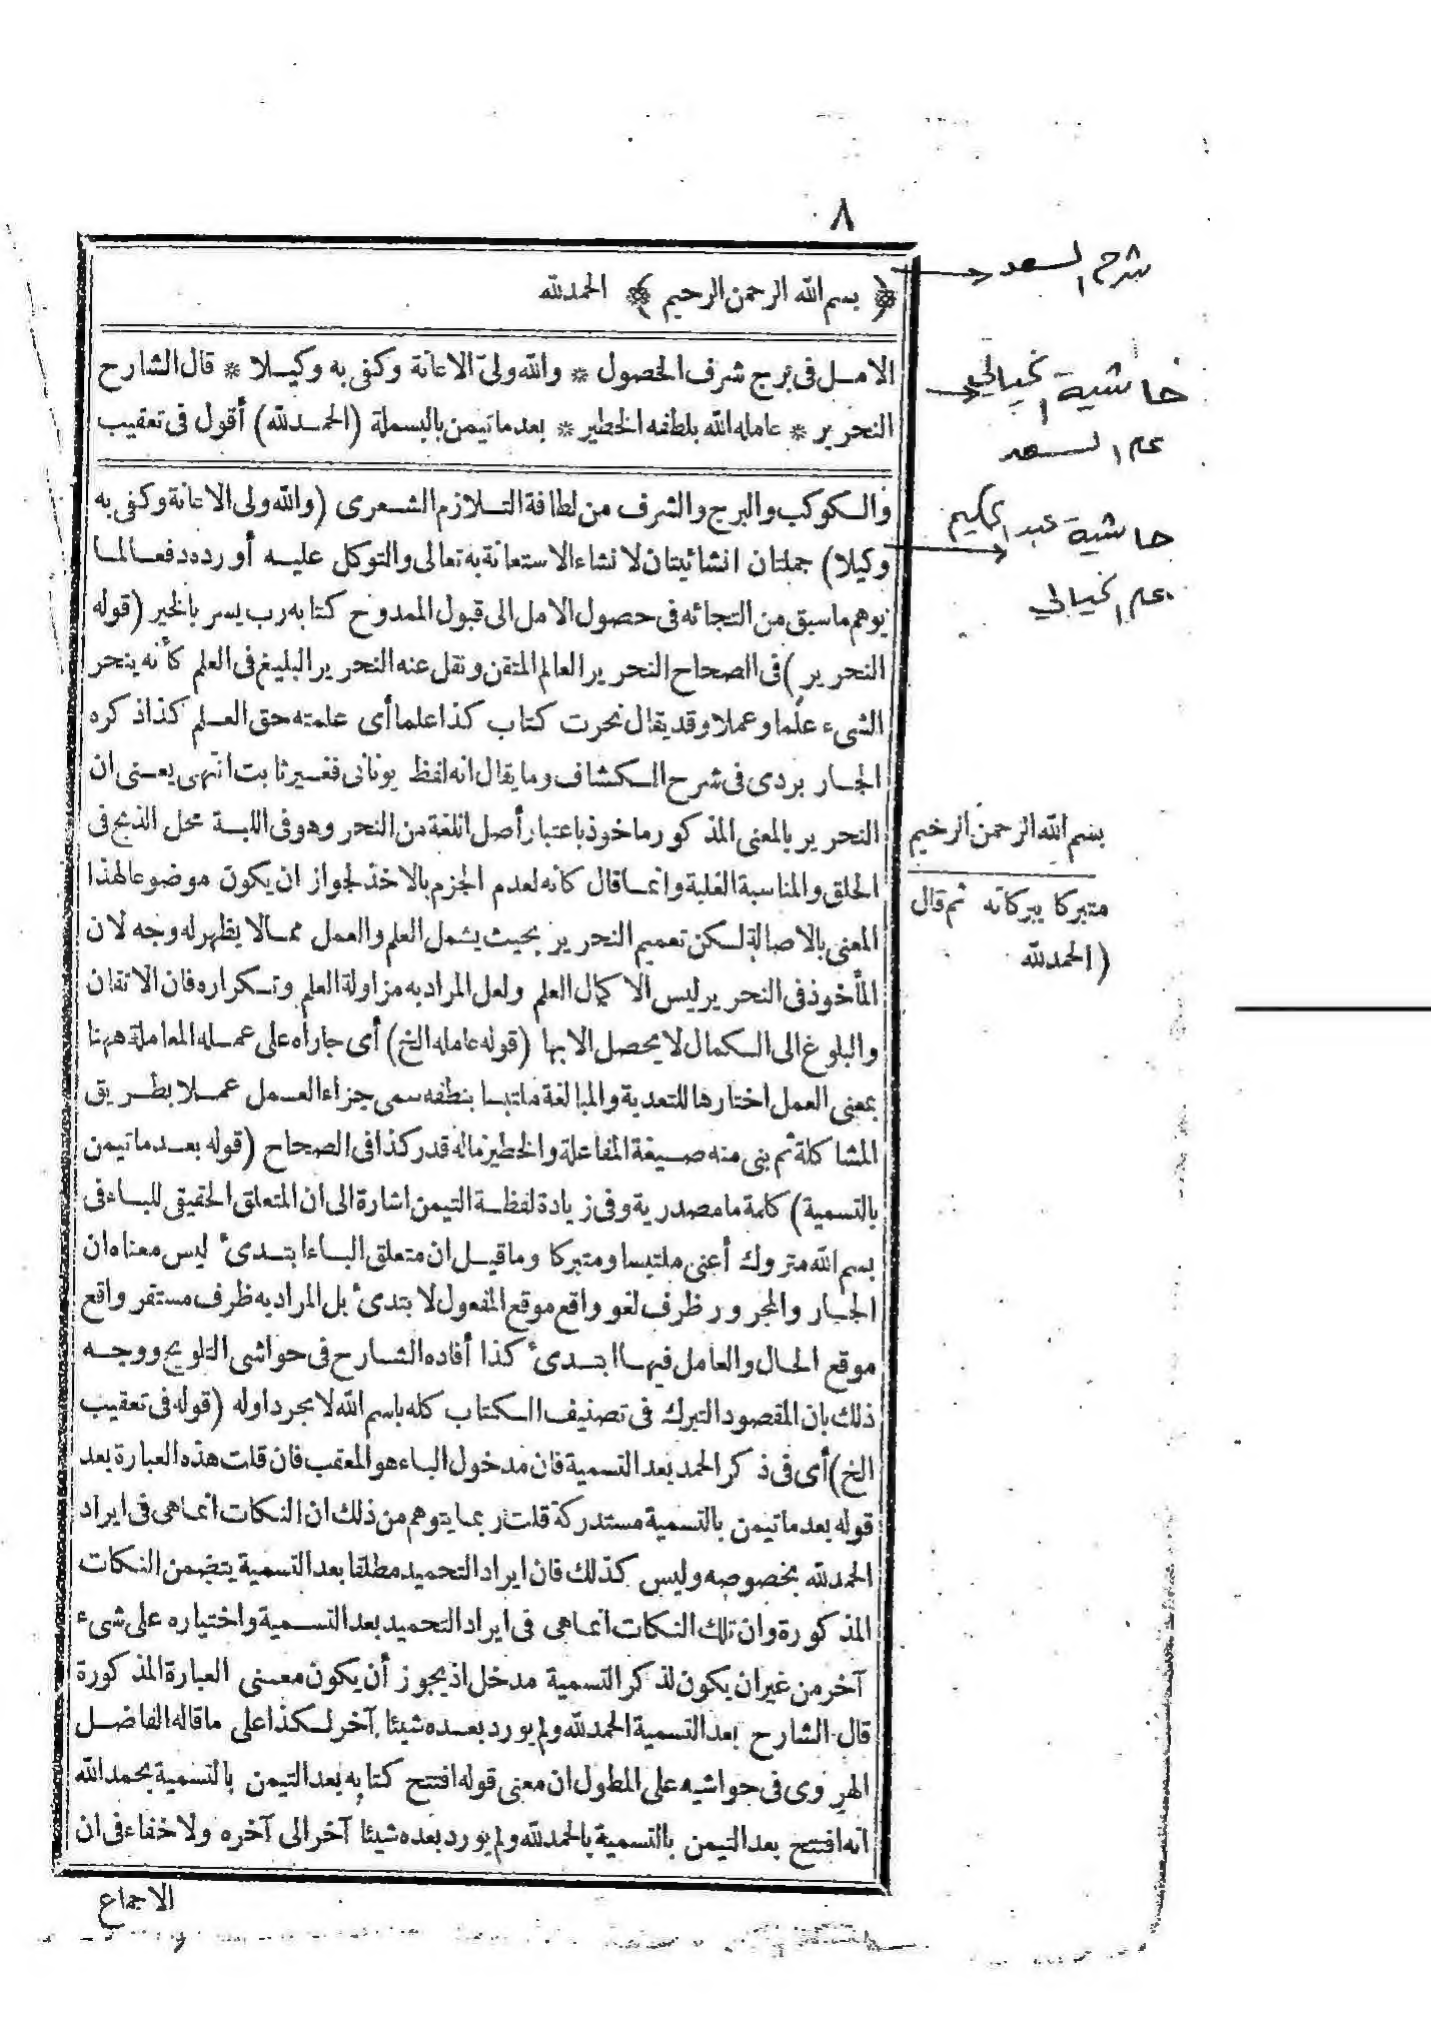 ٨
﴿ بسم الله الرحمن الرحيم ﴾ الحمدلله
الامل فى برج شرف الحصول * والله ولىّ الاعانة وكفى به وكيلا * قال الشارح
النحرير * عامله الله بلطفه الخطير * بعد ما تيمن بالبسملة (الحمدلله) أقول فى تعقيب
والكوكب والبرج والشرف من لطافة التلازم الشعرى (والله ولى الاعانة وكفى به
وكيلا) جملتان انشائيتان لانشاء الاستعانة به تعالى والتوكل عليه أورده دفعا لما
يوهم ما سبق من التجائه فى حصول الامل الى قبول الممدوح كتابه رب يسر بالخير (قوله
النحرير) فى الصحاح النحرير العالم المتقن ونقل عنه النحرير البليغ فى العلم كأنه ينحر
الشىء علما وعملا وقد يقال نحرت كتاب كذا علما أى علمته حق العلم كذا ذكره
الجاربردى فى شرح الكشاف وما يقال انه لفظ يونانى فغير ثابت انتهى يعنى ان
النحرير بالمعنى المذكور ماخوذ باعتبار أصل اللغة من النحر وهو فى اللبة محل الذبح فى
الحلق والمناسبة الغلبة وانما قال كانه لعدم الجزم بالاخذ لجواز ان يكون موضوعا لهذا
المعنى بالاصالة لكن تعميم النحرير بحيث يشمل العلم والعمل مما لا يظهر له وجه لان
المأخوذ فى النحرير ليس الا كمال العلم ولعل المراد به مزاولة العلم وتكراره فان الاتقان
والبلوغ الى الكمال لا يحصل الا بها (قوله عامله الخ) أى جاراه على عمله المعاملة ههنا
بمعنى العمل اختارها للتعدية والمبالغة ملتبسا بلطفه سمى جزاء العمل عملا بطريق
المشاكلة ثم بنى منه صيغة المفاعلة والخطير ماله قدر كذا فى الصحاح (قوله بعد ما تيمن
بالتسمية) كلمة ما مصدرية وفى زيادة لفظة التيمن اشارة الى ان المتعلق الحقيقى للباء فى
بسم الله متروك أعنى ملتبسا ومتبركا وما قيل ان متعلق الباء ابتدئ ليس معناه ان
الجار والمجرور ظرف لغو واقع موقع المفعول لابتدئ بل المراد به ظرف مستقر واقع
موقع الحال والعامل فيها ابتدئ كذا أفاده الشارح فى حواشى التلويح ووجه
ذلك بان المقصود التبرك فى تصنيف الكتاب كله باسم الله لا مجرد اوله (قوله فى تعقيب
الخ) أى فى ذكر الحمد بعد التسمية فان مدخول الباء هو المعقب فان قلت هذه العبارة بعد
قوله بعد ما تيمن بالتسمية مستدركة قلت ربما يتوهم من ذلك ان النكات انما هى فى ايراد
الحمدلله بخصوصه وليس كذلك فان ايراد التحميد مطلقا بعد التسمية يتضمن النكات
المذكورة وان تلك النكات انما هى فى ايراد التحميد بعد التسمية واختياره على شىء
آخر من غير ان يكون لذكر التسمية مدخل اذ يجوز أن يكون معنى العبارة المذكورة
قال الشارح بعد التسمية الحمدلله ولم يورد بعده شيئا آخر لكذا على ما قاله الفاضل
الهروى فى حواشيه على المطول ان معنى قوله افتتح كتابه بعد التيمن بالتسمية بحمد الله
انه افتتح بعد التيمن بالتسمية بالحمدلله ولم يورد بعده شيئا آخر الى آخره ولا خفاء فى ان
الاجماع
شرح السعد
حاشية الخيالي
على السعد
حاشية عبد الحكيم
على الخيالي
بسم الله الرحمن الرحيم
متبركا ببركاته ثم قال
(الحمدلله